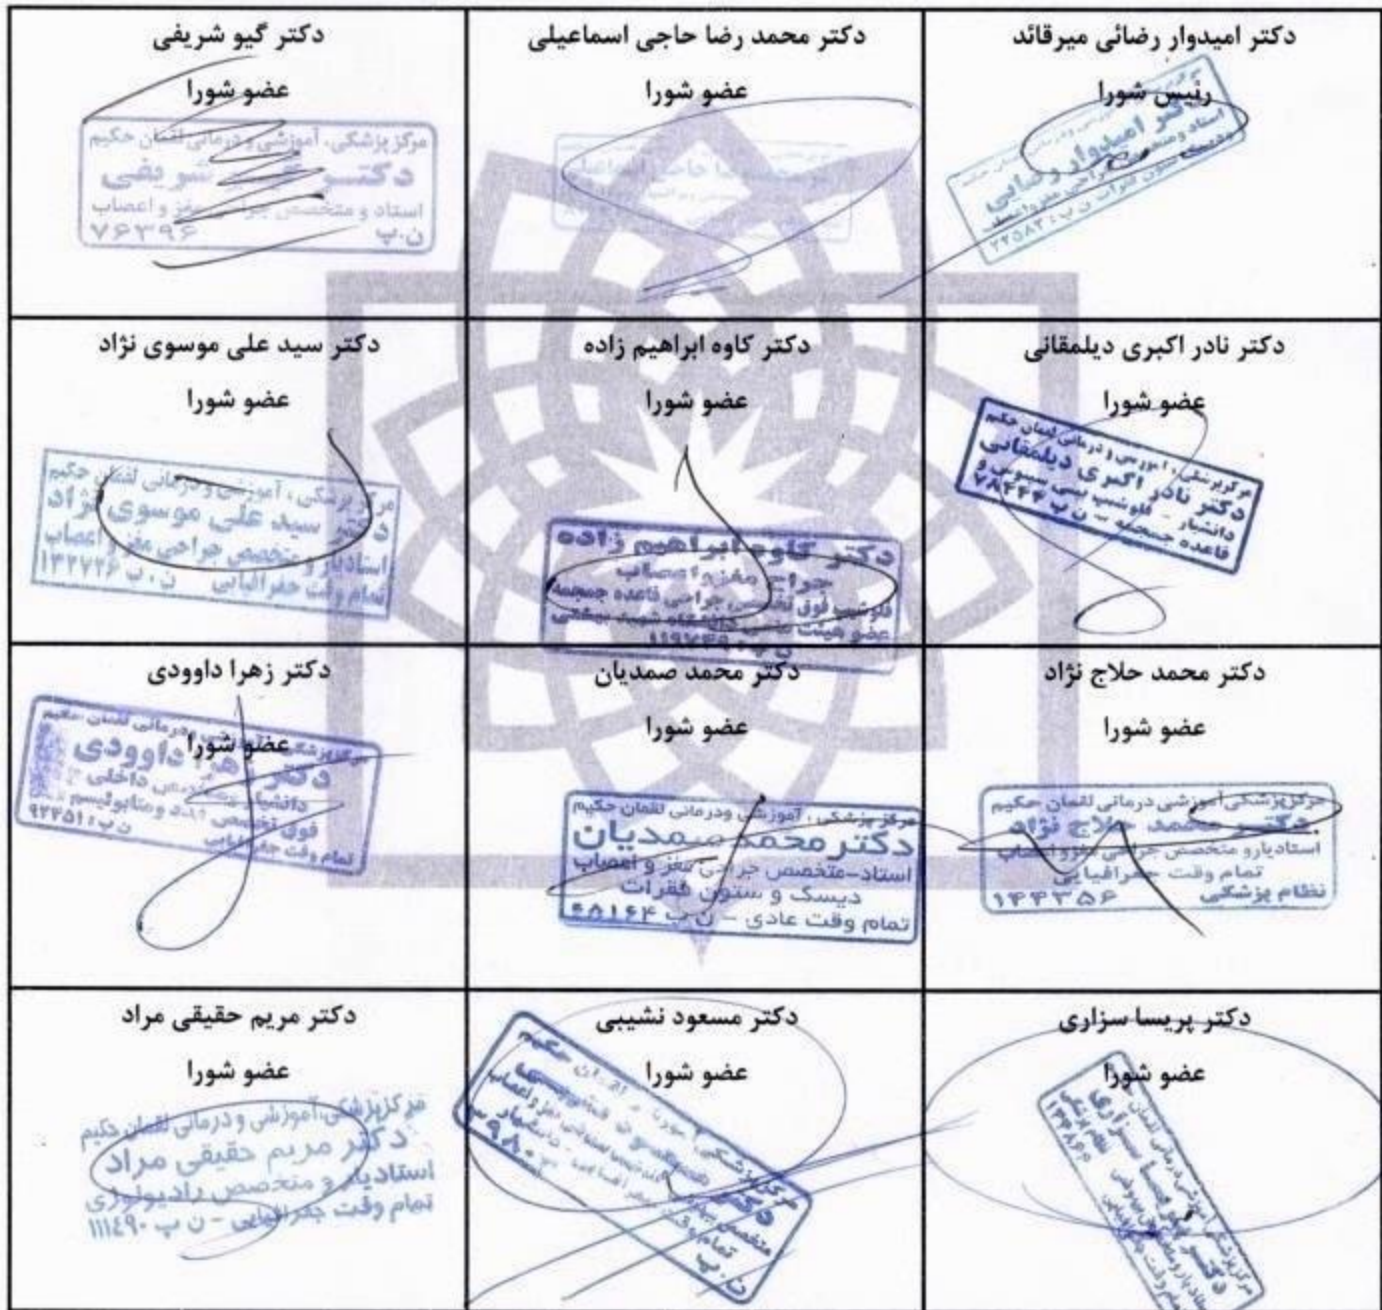 دکتر امیدوار رضائی میرقائد
رئیس شورا
دکتر امیدوار رضایی
۲۲۵۸۲
دکتر محمد رضا حاجی اسماعیلی
عضو شورا
دکتر گیو شریفی
عضو شورا
مرکز پزشکی، آموزشی و درمانی لقمان حکیم
دکتر شریفی
استاد و متخصص جراحی مغز و اعصاب
ن.پ ۷۶۳۹۶
دکتر نادر اکبری دیلمقانی
عضو شورا
مرکز پزشکی، آموزشی و درمانی لقمان حکیم
دکتر نادر اکبری دیلمقانی
دانشیار - فلوشیپ بینی سینوس و
قاعده جمجمه - ن پ ۷۸۴۴۴
دکتر کاوه ابراهیم زاده
عضو شورا
دکتر کاوه ابراهیم زاده
جراح مغز و اعصاب
فلوشیپ فوق تخصصی جراحی قاعده جمجمه
عضو هیئت علمی دانشگاه شهید بهشتی
دکتر سید علی موسوی نژاد
عضو شورا
مرکز پزشکی، آموزشی و درمانی لقمان حکیم
دکتر سید علی موسوی نژاد
استادیار و متخصص جراحی مغز و اعصاب
تمام وقت جغرافیایی ن.پ ۱۴۲۷۲۶
دکتر محمد حلاج نژاد
عضو شورا
مرکز پزشکی آموزشی درمانی لقمان حکیم
دکتر محمد حلاج نژاد
استادیار و متخصص جراحی مغز و اعصاب
تمام وقت جغرافیایی
نظام پزشکی ۱۴۴۳۵۶
دکتر محمد صمدیان
عضو شورا
مرکز پزشکی، آموزشی ودرمانی لقمان حکیم
دکتر محمد صمدیان
استاد-متخصص جراحی مغز و اعصاب
دیسک و ستون فقرات
تمام وقت عادی - ن پ ۴۵۱۶۴
دکتر زهرا داوودی
عضو شورا
مرکز پزشکی، آموزشی و درمانی لقمان حکیم
دکتر زهرا داوودی
دانشیار متخصص داخلی
فوق تخصص غدد و متابولیسم
تمام وقت جغرافیایی ن پ: ۹۲۴۵۱
دکتر پریسا سزاری
عضو شورا
مرکز پزشکی، آموزشی درمانی لقمان حکیم
دکتر پریسا سزاری
دکتر مسعود نشیبی
عضو شورا
دکتر مسعود نشیبی
تمام وقت جغرافیایی - دانشیار
ن.پ
دکتر مریم حقیقی مراد
عضو شورا
مرکز پزشکی،آموزشی و درمانی لقمان حکیم
دکتر مریم حقیقی مراد
استادیار و متخصص رادیولوژی
تمام وقت جغرافیایی - ن پ ۱۱۱۴۹۰